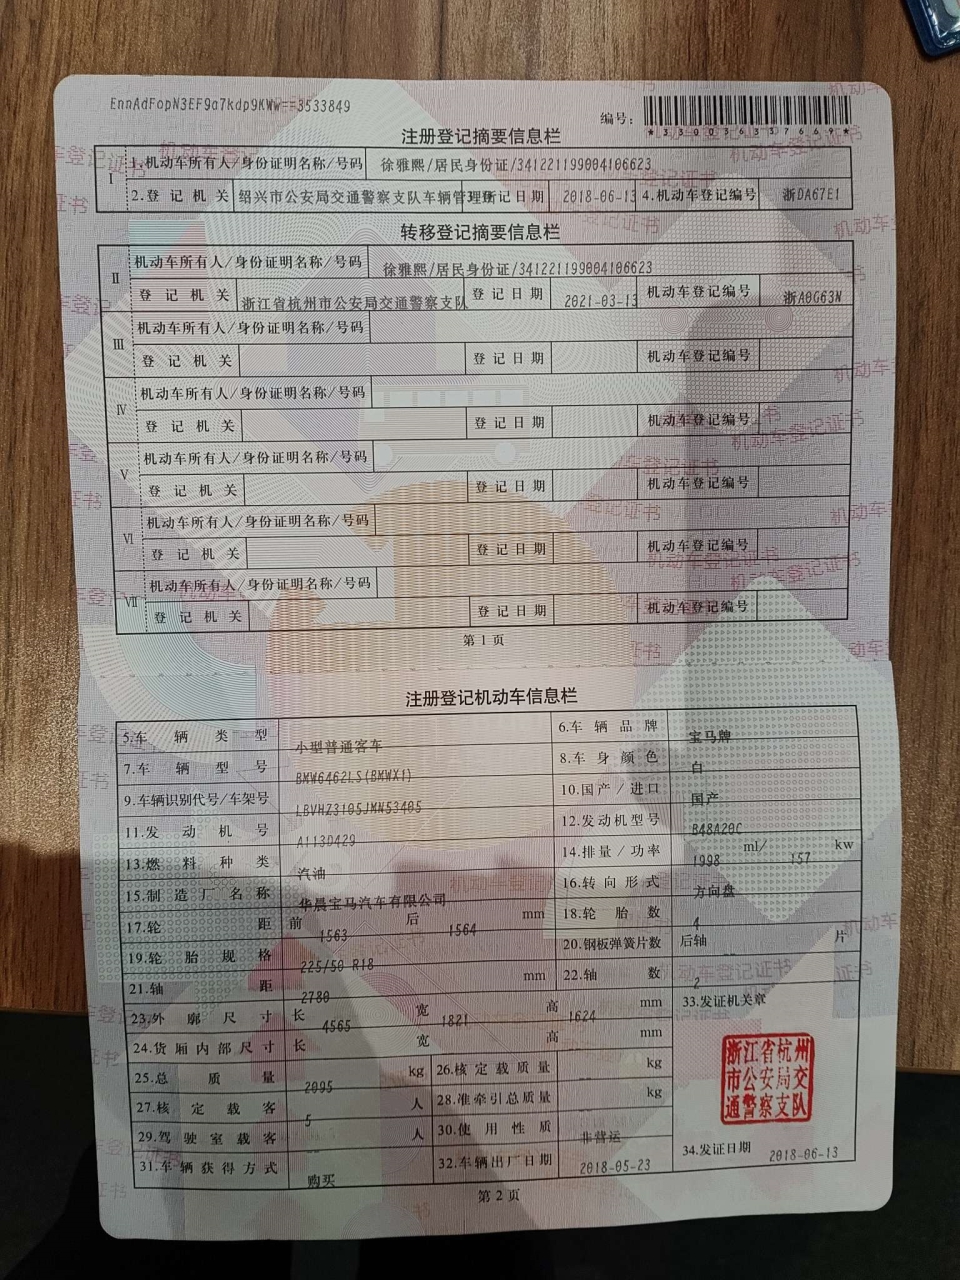 EnnAdFopN3EF9a7kdp9KWw==3533849
编号:
*330036337669*
注册登记摘要信息栏
I 1.机动车所有人/身份证明名称/号码 徐雅熙/居民身份证/341221199004106623
2.登记机关 绍兴市公安局交通警察支队车辆管理所 3.登记日期 2018-06-13 4.机动车登记编号 浙DA67E1
转移登记摘要信息栏
II 机动车所有人/身份证明名称/号码 徐雅熙/居民身份证/341221199004106623
登记机关 浙江省杭州市公安局交通警察支队 登记日期 2021-03-13 机动车登记编号 浙A0G63N
III 机动车所有人/身份证明名称/号码
登记机关 登记日期 机动车登记编号
IV 机动车所有人/身份证明名称/号码
登记机关 登记日期 机动车登记编号
V 机动车所有人/身份证明名称/号码
登记机关 登记日期 机动车登记编号
VI 机动车所有人/身份证明名称/号码
登记机关 登记日期 机动车登记编号
VII 机动车所有人/身份证明名称/号码
登记机关 登记日期 机动车登记编号
第1页
注册登记机动车信息栏
5.车辆类型 小型普通客车 6.车辆品牌 宝马牌
7.车辆型号 BMW6462LS(BMWX1) 8.车身颜色 白
9.车辆识别代号/车架号 LBVHZ3105JMN53405 10.国产/进口 国产
11.发动机号 A113D429 12.发动机型号 B48A20C
13.燃料种类 汽油 14.排量/功率 1998 ml/ 157 kw
15.制造厂名称 华晨宝马汽车有限公司 16.转向形式 方向盘
17.轮距 前 1563 后 1564 mm 18.轮胎数 4
19.轮胎规格 225/50 R18 20.钢板弹簧片数 后轴 -- 片
21.轴距 2780 mm 22.轴数 2
23.外廓尺寸 长 4565 宽 1821 高 1624 mm 33.发证机关章
24.货厢内部尺寸 长 宽 高 mm
浙江省杭州市公安局交通警察支队
25.总质量 2095 kg 26.核定载质量 -- kg
27.核定载客 5 人 28.准牵引总质量 -- kg
29.驾驶室载客 -- 人 30.使用性质 非营运
31.车辆获得方式 购买 32.车辆出厂日期 2018-05-23 34.发证日期 2018-06-13
第2页